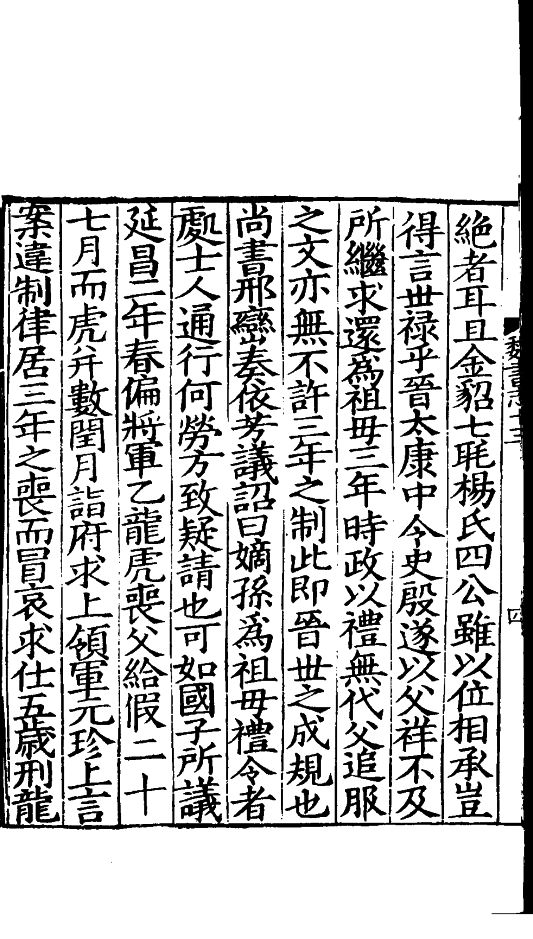 絶者耳且金貂七毦楊氏四公雖以位相承豈
得言世禄乎晉太康中令史殷遂以父祥不及
所繼求還爲祖母三年時政以禮無代父追服
之文亦無不許三年之制此即晉世之成規也
尚書邢巒奏依芳議詔曰嫡孫爲祖母禮令者
處士人通行何勞方致疑請也可如國子所議
延昌二年春偏將軍乙龍虎喪父給假二十
七月而虎并數閏月詣府求上領軍元珍上言
案違制律居三年之喪而冒哀求仕五歳刑龍
魏書志十
四